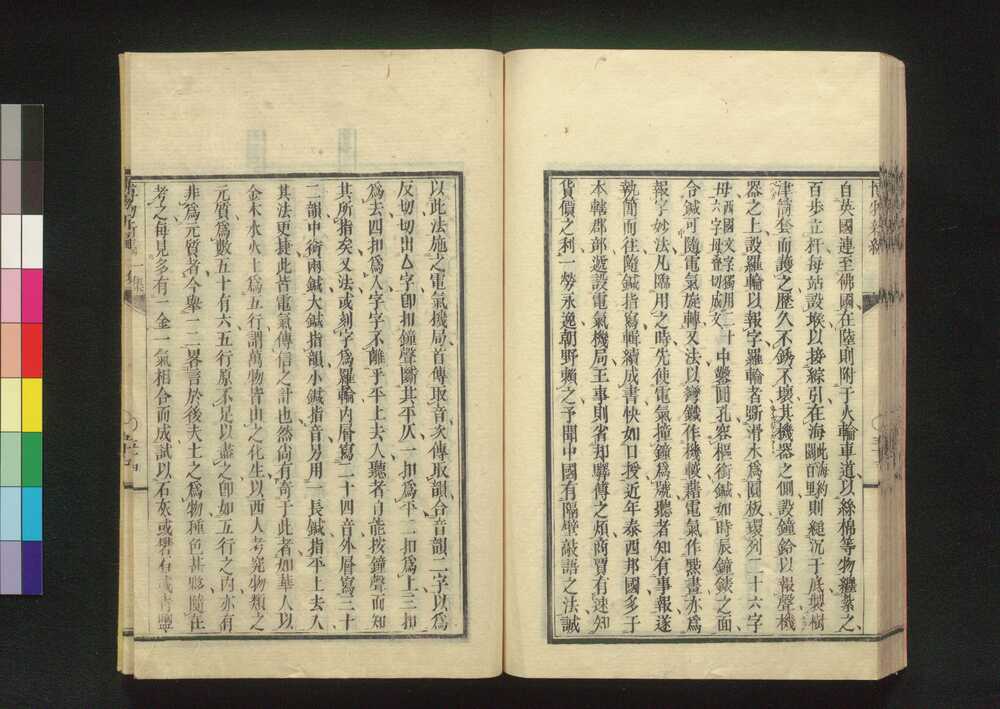 自英國連至佛國、在陸則附于火輪車道、以絲棉等物纏紮之、
百步立杆、每站設堠以接綜引、在海此海約闊百里則縋沉于底、製樹
津筒套而護之、歷久不銹不壞、其機器之側、設鐘鈴以報聲、機
器之上、設羅輪以報字、羅輪者、斲滑木為圓板、環列二十六字
母西國文字獨用二十六字母疊切成文中鑿圓孔、容樞銜鍼、如時辰鐘錶之面、
令鍼可隨電氣旋轉、又法以彎鐵作機、藉電氣作點畫、亦為
報字妙法、凡臨用之時、先使電氣撞鐘為號、聽者知有事報、遂
執簡而往、隨鍼指寫、輯續成書、快如口授、近年泰西邦國、多于
本轄郡部、遞設電氣機局、王事則省却驛傳之煩、商賈有速知
貨價之利、一勞永逸、朝野賴之、予聞中國有隔壁敲語之法、誠
以此法施之電氣機局、首傳取音、次傳取韻、合音韻二字以為
反切、切出△字、即扣鐘聲斷其平仄、一扣為平、二扣為上、三扣
為去、四扣為入、字字不離乎平上去入、聽者自能按鐘聲而知
其所指矣、又法或刻字為羅輪、內層寫二十四音、外層寫三十
二韻、中銜兩鍼、大鍼指韻、小鍼指音、另用一長鍼指平上去入、
其法更捷、此皆電氣傳信之計也、然尚有奇于此者、如華人以
金木水火土為五行、謂萬物皆由之化生、以西人考究物類之
元質、為數五十有六、五行原不足以盡之、即如五行之內、亦有
非為元質者、今舉一二畧言於後、夫土之為物、種色甚夥、隨在
考之、每見多有一金一氣相合而成、試以石灰或礬石或青鹽